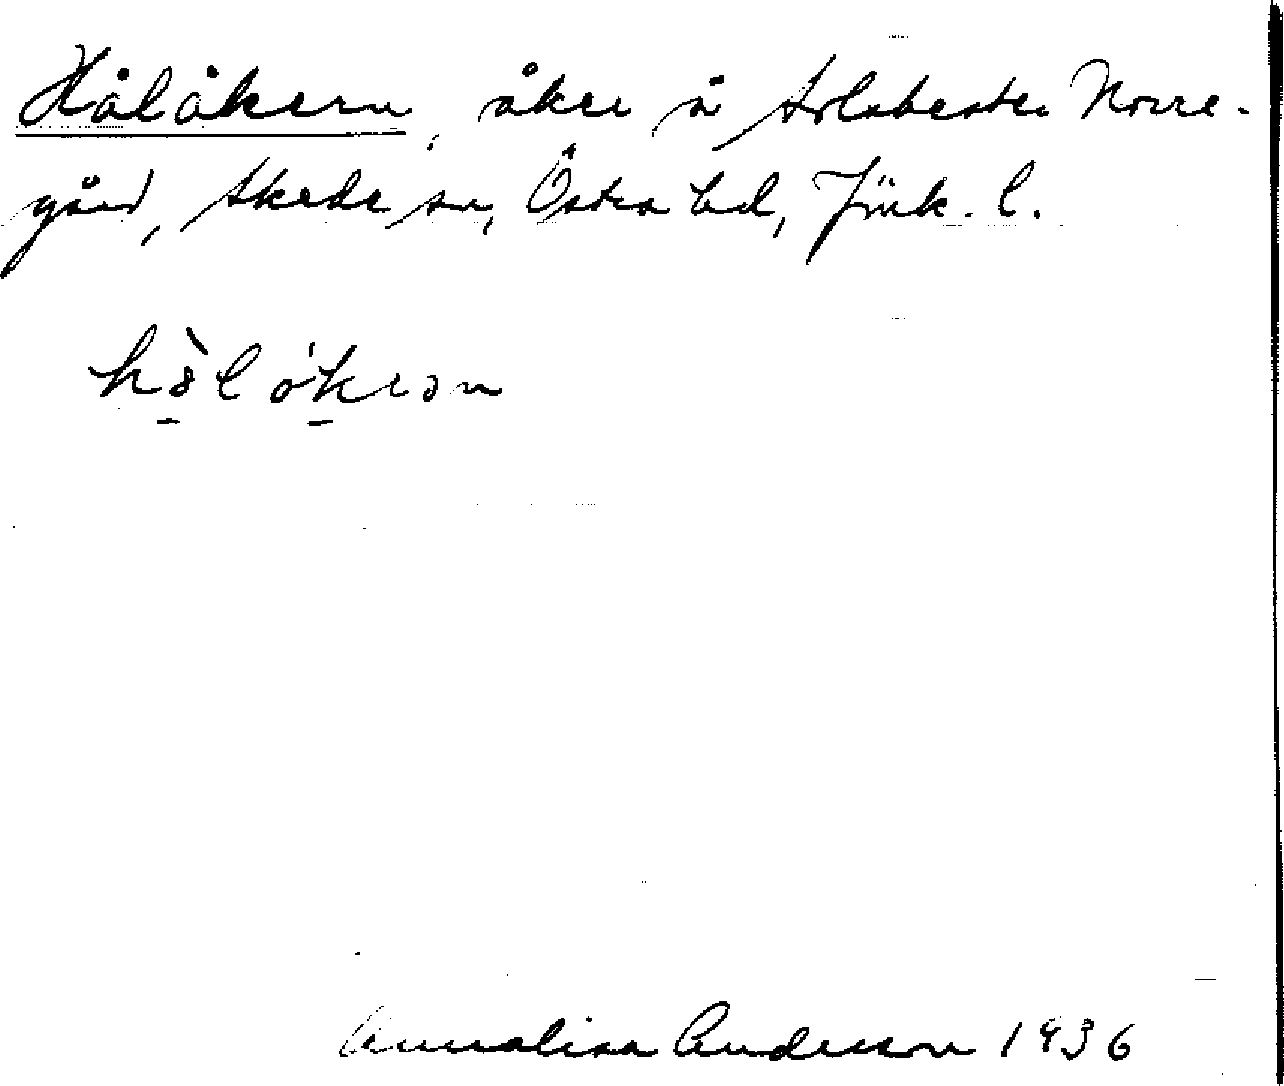 Hålåkern, åker å Solaberto Norre-
gård, Skede sn, Östra hd, Jönk. l.
hò̱lóḵrən
Annalisa Anderson 1936